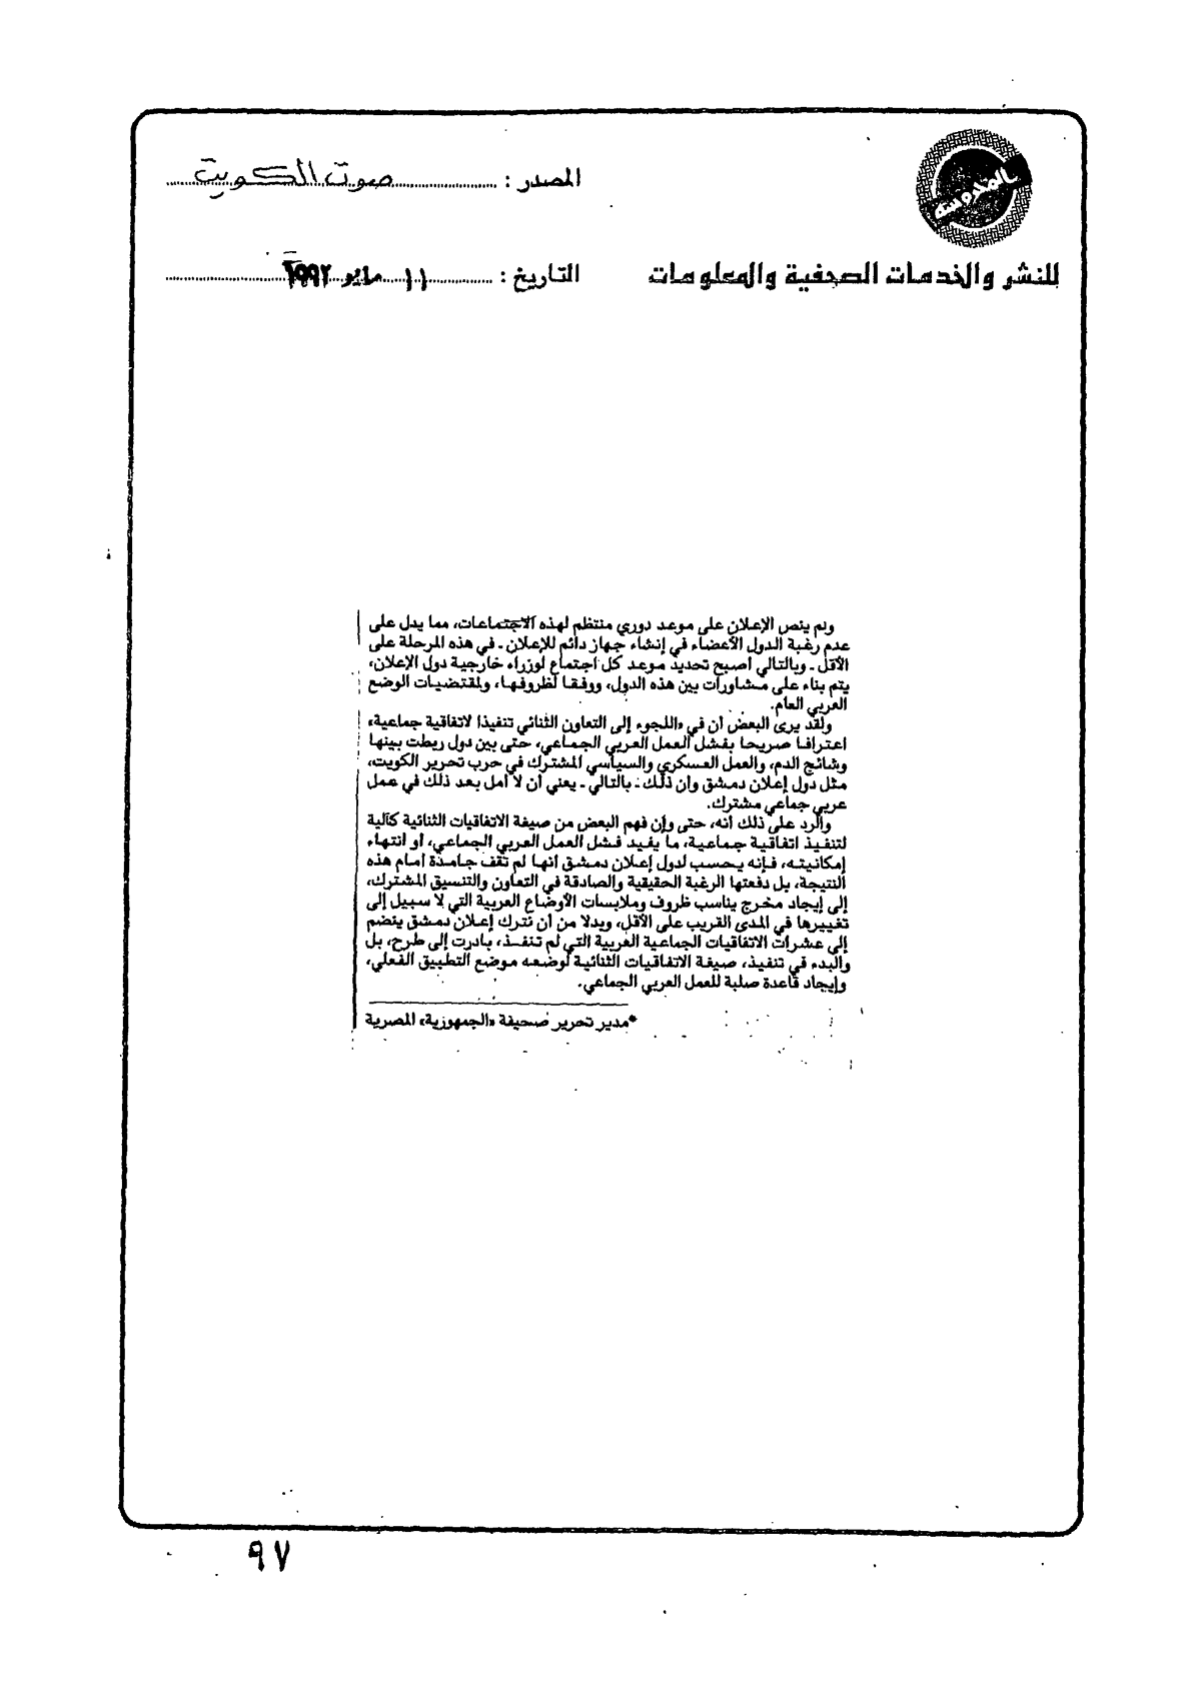 المصدر : صوت الكويت
للنشر والخدمات الصحفية والمعلومات
التاريخ : ١١ مايو ١٩٩٢
ولم ينص الإعلان على موعد دوري منتظم لهذه الاجتماعات، مما يدل على
عدم رغبة الدول الأعضاء في إنشاء جهاز دائم للإعلان ـ في هذه المرحلة على
الأقل ـ وبالتالي أصبح تحديد موعد كل اجتماع لوزراء خارجية دول الإعلان،
يتم بناء على مشاورات بين هذه الدول، ووفقا لظروفها، ولمقتضيات الوضع
العربي العام.
ولقد يرى البعض أن في «اللجوء إلى التعاون الثنائي تنفيذا لاتفاقية جماعية»
اعترافا صريحا بفشل العمل العربي الجماعي، حتى بين دول ربطت بينها
وشائج الدم، والعمل العسكري والسياسي المشترك في حرب تحرير الكويت،
مثل دول إعلان دمشق وأن ذلك ـ بالتالي ـ يعني أن لا أمل بعد ذلك في عمل
عربي جماعي مشترك.
والرد على ذلك أنه، حتى وإن فهم البعض من صيغة الاتفاقيات الثنائية كآلية
لتنفيذ اتفاقية جماعية، ما يفيد فشل العمل العربي الجماعي، أو انتهاء
إمكانيته، فإنه يحسب لدول إعلان دمشق أنها لم تقف جامدة أمام هذه
النتيجة، بل دفعتها الرغبة الحقيقية والصادقة في التعاون والتنسيق المشترك،
إلى إيجاد مخرج يناسب ظروف وملابسات الأوضاع العربية التي لا سبيل إلى
تغييرها في المدى القريب على الأقل، وبدلا من أن نترك إعلان دمشق ينضم
إلى عشرات الاتفاقيات الجماعية العربية التي لم تنفذ، بادرت إلى طرح، بل
والبدء في تنفيذ، صيغة الاتفاقيات الثنائية لوضعه موضع التطبيق الفعلي،
وإيجاد قاعدة صلبة للعمل العربي الجماعي.
*مدير تحرير صحيفة «الجمهورية» المصرية
٩٧